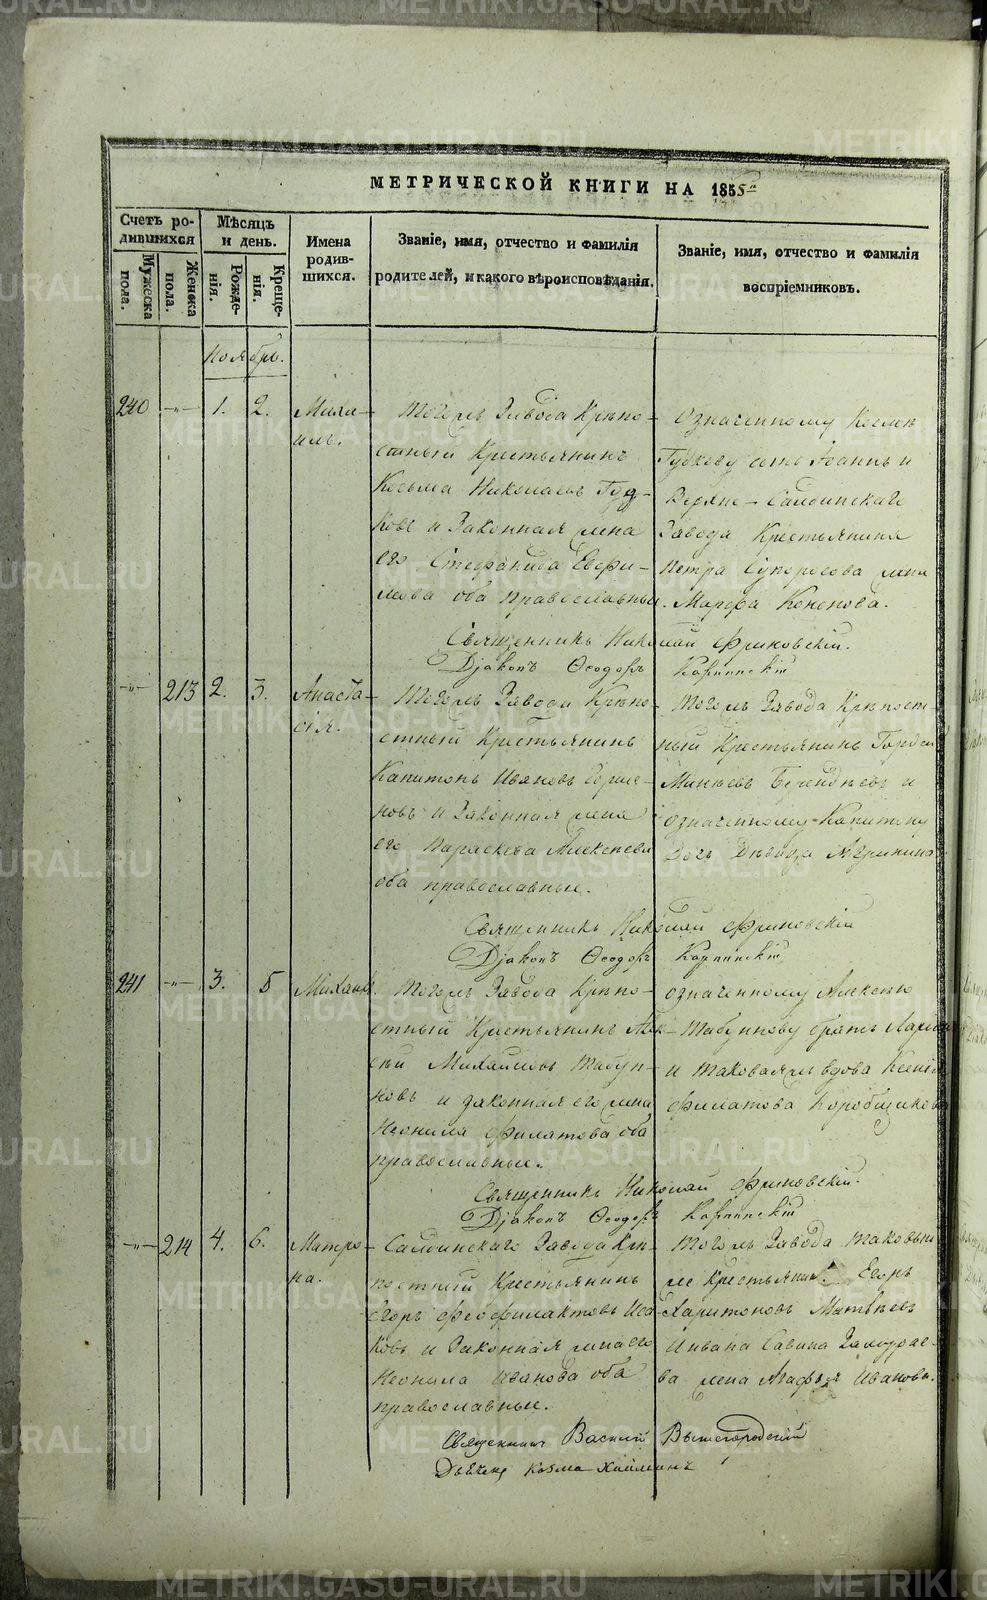 МЕТРИЧЕСКОЙ КНИГИ НА 1855
Счетъ ро-
дившихся
Мѣсяцъ
и день.
Мужеска
пола.
Женска
пола.
Рожде-
нія.
Креще-
нія.
Имена
родив-
шихся.
Званіе, имя, отчество и фамилія
родителей, и какого вѣроисповѣданія.
Званіе, имя, отчество и фамилія
воспріемниковъ.
Ноябрь.
240 -„- 1. 2.
Миха-
илъ.
Тогожъ Завода Крѣпо-
стный Крестьянинъ
Козьма Николаевъ Гуд-
ковъ и Законная жена
его Стефанида
оба православные.
Означенному Космѣ
Гудкову
Верхне-Салдинскаго
Завода Крестьянина
Петра жена
Марфа Кононова.
Священникъ Николай Фриновскій.
Діаконъ Ѳеодоръ Карпинскій
-„- 213 2. 3.
Анаста-
сія.
Тогожъ Завода Крѣпо-
стный Крестьянинъ
Капитонъ Ивановъ
и Законная жена
его Параскева Алексеева
оба православные.
Тогожъ Завода Крѣпост-
ный Крестьянинъ Гордей
Минѣевъ и
означенному Капитону
дочь дѣвица Агрипина
Священникъ Николай Фриновскій
Діаконъ Ѳеодоръ Карпинскій
241 -„- 3. 5
Михаилъ.
Тогожъ Завода Крѣпо-
стный Крестьянинъ Алек-
сѣй Михайловъ Табун-
ковъ и законная его жена
Неонила Филатова оба
православные.
означенному Алексею
Табункову братъ
и таковаяжъ вдова Ксенія
Филатова Коробщикова
Священникъ Николай Фриновскій.
Діаконъ Ѳеодоръ Карпинскій
-„- 214 4. 6.
Матро-
на.
Салдинскаго Завода Крѣ-
постный Крестьянинъ
Егоръ Феофилактовъ Иса-
ковъ и Законная жена его
Неонила Иванова оба
православные.
Тогожъ Завода таковый
же Крестьянинъ Егоръ
Харитоновъ Матвѣевъ
Савина
жена Агафья Иванова.
Священникъ Василій Вышегородскій
Дьяконъ Козма
METRIKI.GASO-URAL.RU